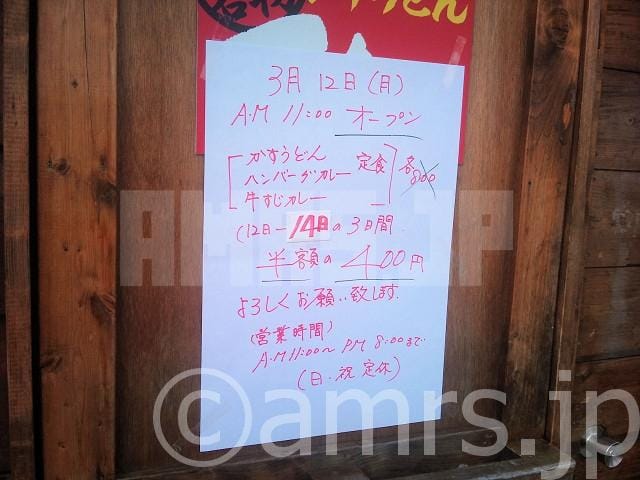 うどん
3月12日(月)
A.M 11:00 オープン
かすうどん 定食
ハンバーグカレー 各800
牛すじカレー
(12日-14日の3日間
半額の400円
よろしくお願い致します.
(営業時間)
A.M 11:00〜PM 8:00まで
(日・祝 定休)
AMRS.JP
©amrs.jp